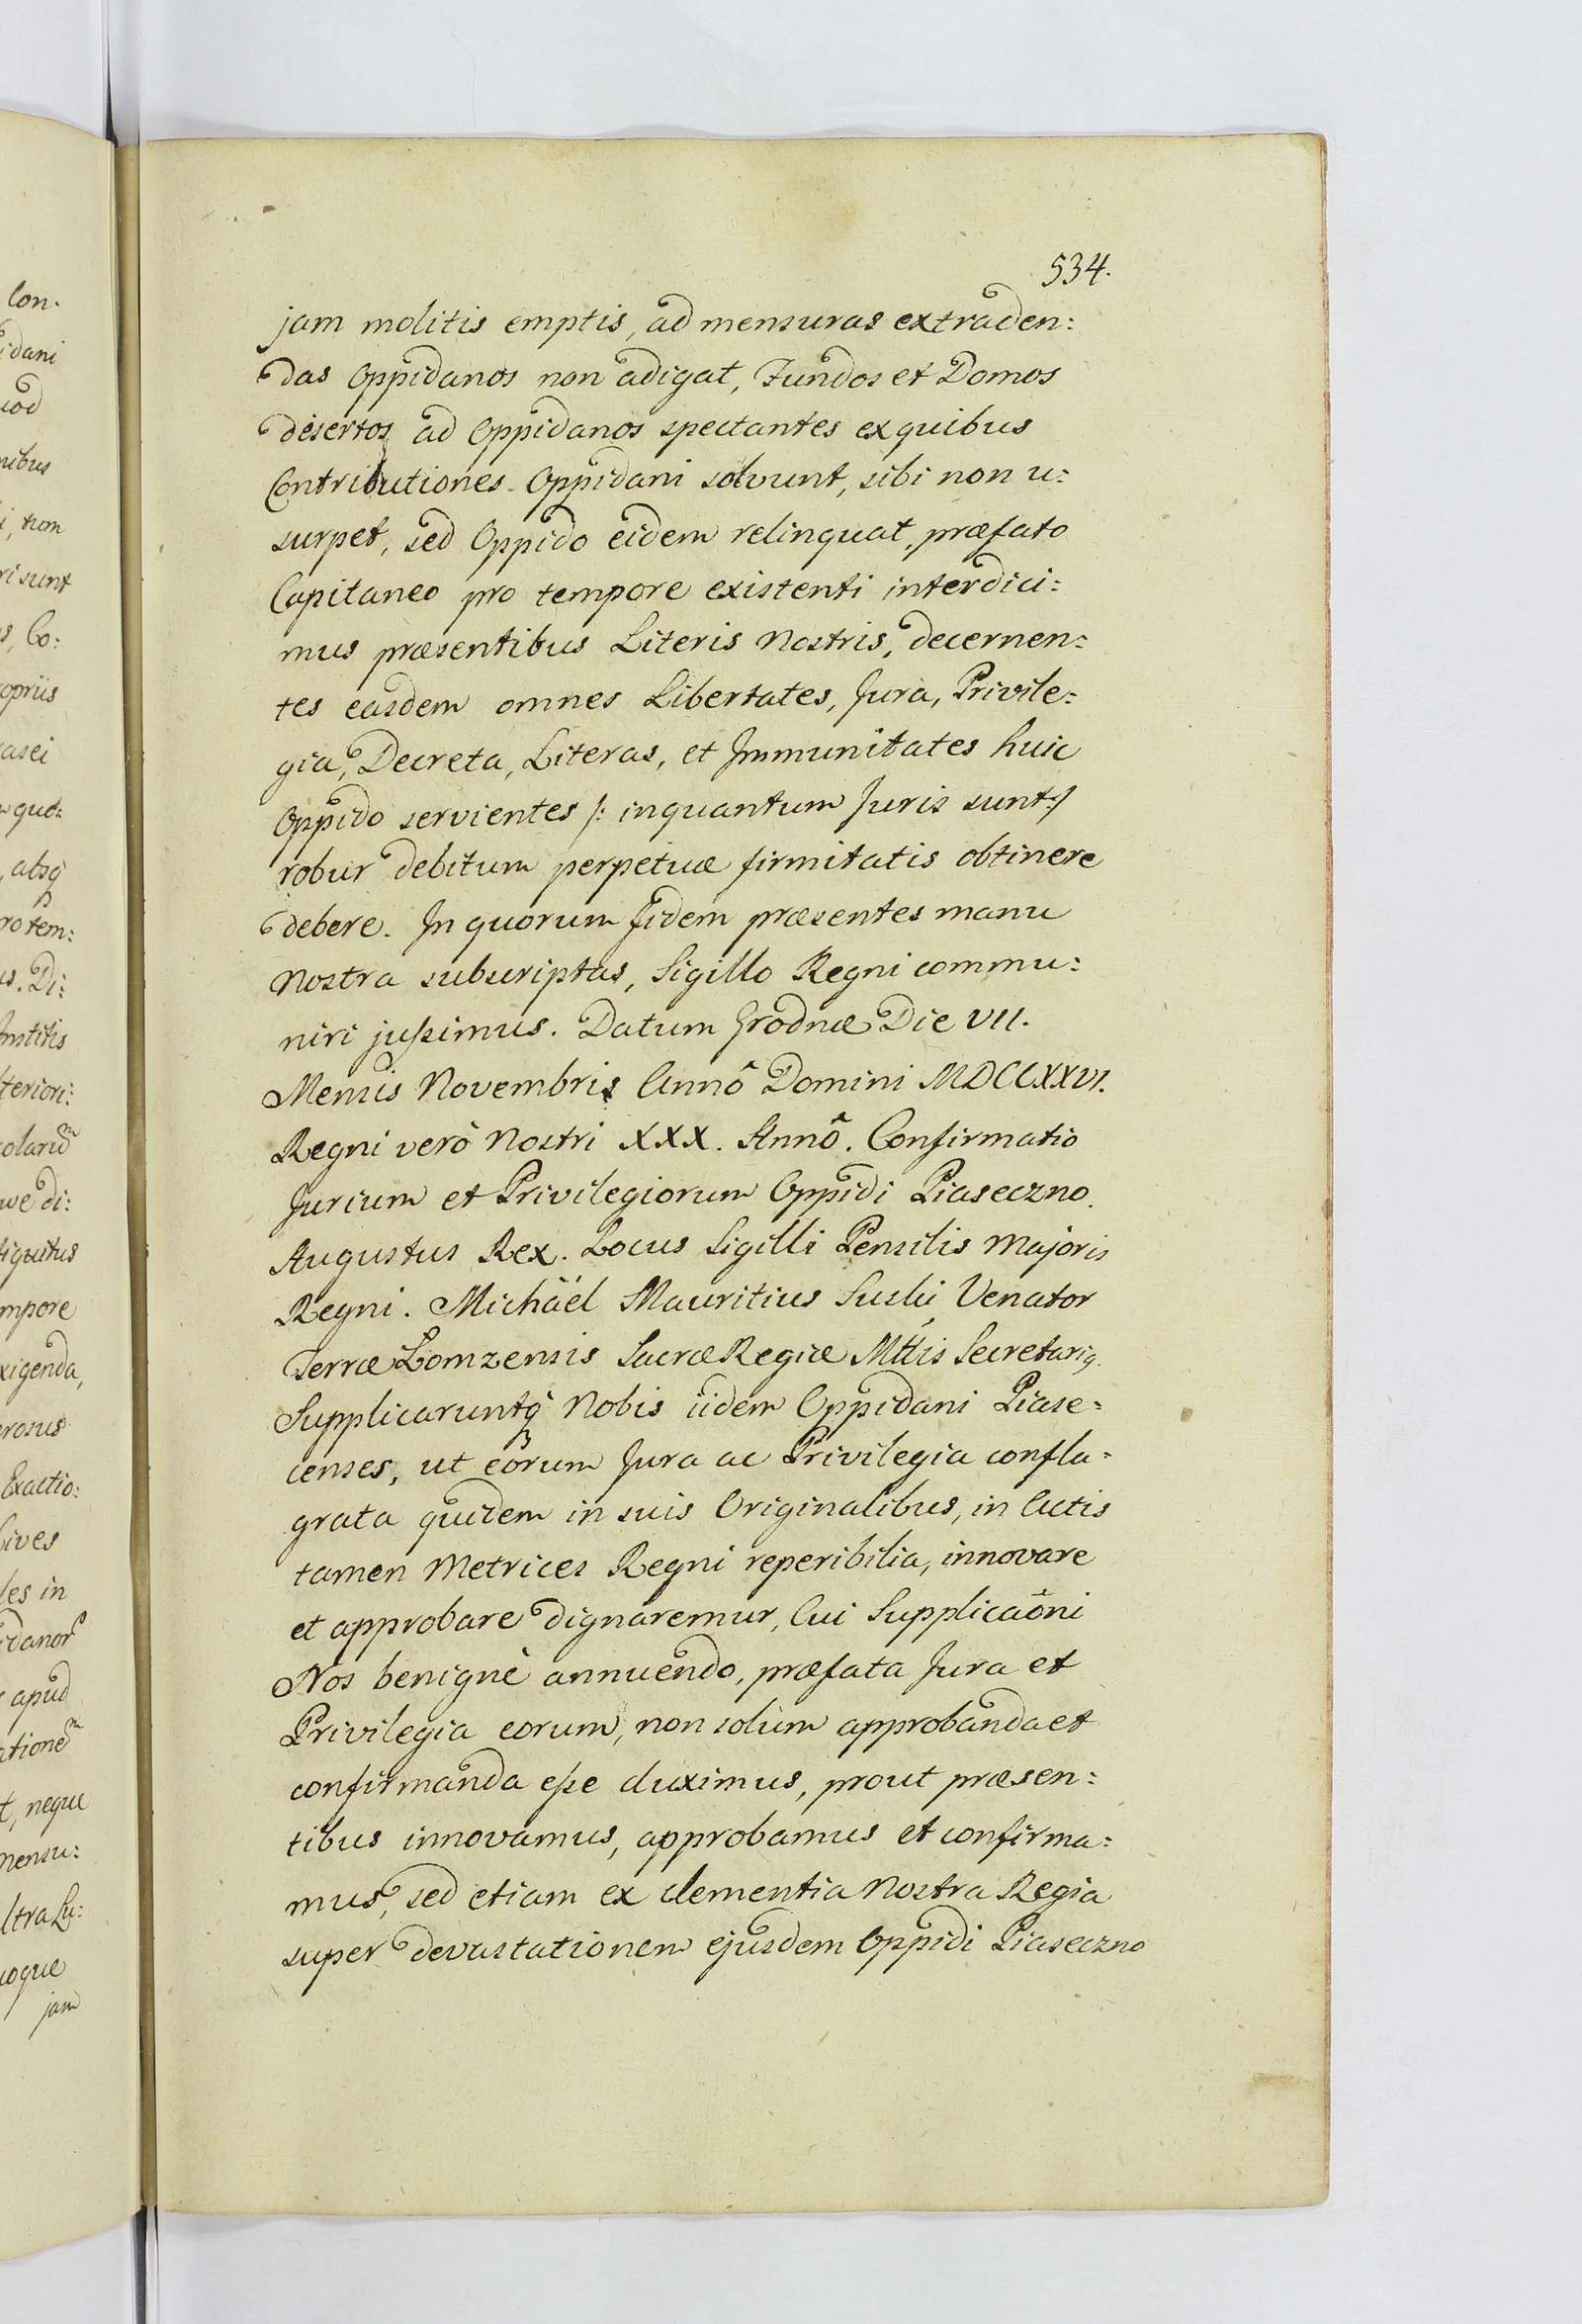 534.
jam molitis emptis, ad mensuras extraden:
das Oppidanos non adigat, Fundos et Domos
desertos ad Oppidanos spectantes ex quibus
Contributiones Oppidani solvunt, sibi non u:
surpet, sed Oppido eidem relinquat, præfato
Capitaneo pro tempore existenti interdici:
mus præsentibus Literis Nostris, decernen:
tes easdem omnes Libertates, Jura, Privile:
gia, Decreta, Literas, et Immunitates huic
Oppido servientes /: inquantum Juris sunt :/
robur debitum perpetuæ firmitatis obtinere
debere. In quorum fidem præsentes manu
Nostra subscriptas, Sigillo Regni commu:
niri jussimus. Datum Grodnæ Die VII.
Mensis Novembris Annô Domini MDCCXXVI.
Regni verò Nostri XXX. Annô. Confirmatio
Jurium et Privilegiorum Oppidi Piaseczno.
Augustus Rex. Locus Sigilli Pensilis Majoris
Regni. Michäel Mauritius Suski, Venator
Terræ Łomzensis Sacræ Regiæ Mttis Secretariq
Supplicaruntq̀ Nobis iidem Oppidani Piase:
censes, ut eorum Jura ac Privilegia confla:
grata quidem in suis Originalibus, in Actis
tamen Metrices Regni reperibilia, innovare
et approbare dignaremur, Cui Supplicaõni
Nos benignè annuendo, præfata Jura et
Privilegia eorum, non solùm approbanda et
confirmanda esse duximus, prout præsen:
tibus innovamus, approbamus et confirma:
mus, sed etiam ex clementia Nostra Regia
super devastationem ejusdem Oppidi Piaseczno